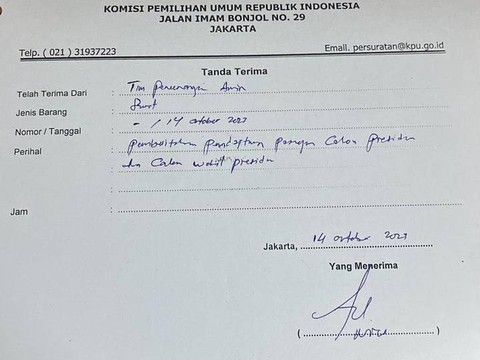 KOMISI PEMILIHAN UMUM REPUBLIK INDONESIA
JALAN IMAM BONJOL NO. 29
JAKARTA
Telp. ( 021 ) 31937223 Email. persuratan@kpu.go.id
Tanda Terima
Telah Terima Dari : Tim Pemenangan Amin
Jenis Barang : Surat
Nomor / Tanggal : - / 14 oktober 2023
Perihal : pemberitahuan pendaftaran pasangan Calon Presiden
dan Calon wakil presiden
:
:
Jam :
Jakarta, 14 oktober 2023
Yang Menerima
( )